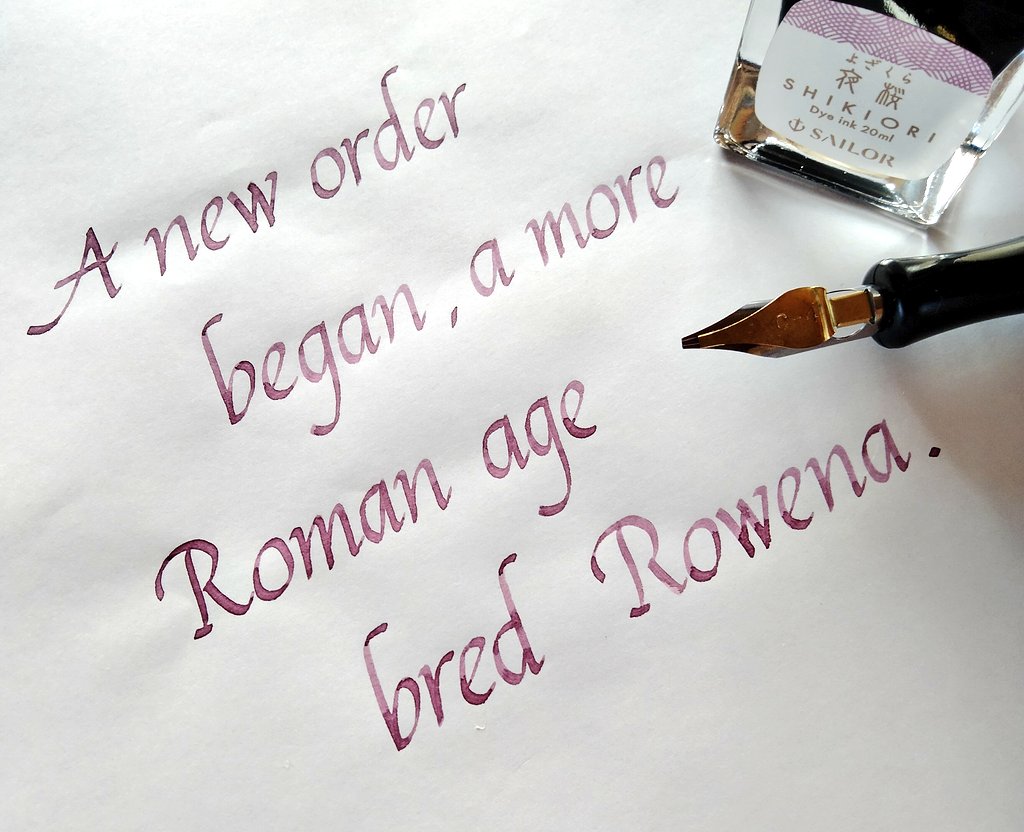 A new order
began, a more
Roman age
bred Rowena.
よざくら
夜桜
SHIKIORI
Dye ink 20ml
SAILOR